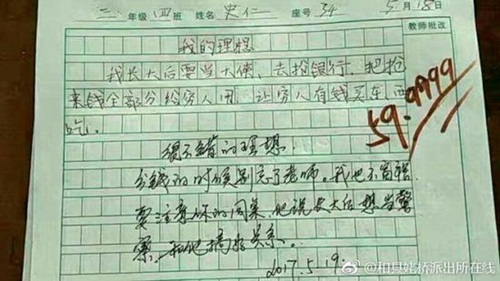 三年级四班 姓名 史仁 座号 34 5月18日
教师批改
我的理想
我长大后要当大侠,去抢银行,把抢
来钱全部分给穷人用,让穷人有钱买东西
吃。
59.9999
很不错的理想
分钱的时候别忘了老师。我也不富裕
要注意你的同桌,他说长大后想当警
察,和他搞好关系。
2017.5.19.
@和县姥桥派出所在线